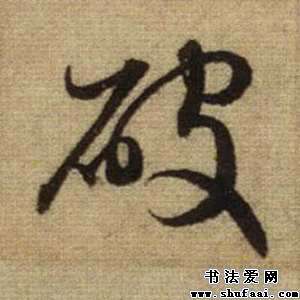 破
书法爱网
www.shufaai.com